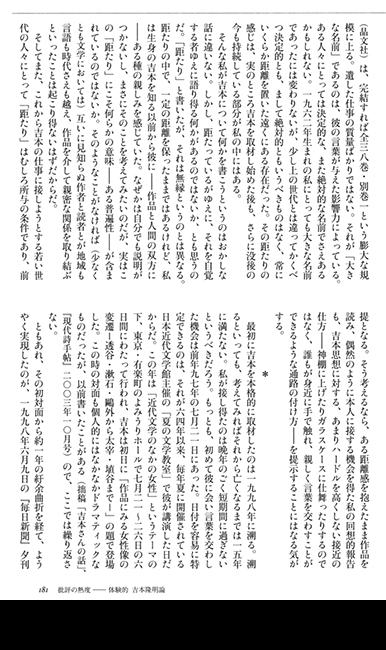 （晶文社）は、完結すれば全三八巻、別巻一という膨大な規
模に上る。遺した仕事の質量ばかりではない。それが「大き
な名前」であるのは、彼の言葉が与えた影響力によっている。
ある人々にとっては決定的な、また絶対的な名前でさえある
かもしれない。一九六二年生まれの私にとっても大きな名前
であったには変わりないが、少し上の世代とは違ってかくべ
つ決定的とも、まして絶対的ともいうべきものはなく、常に
いくらか距離を置いた遠くにある存在だった。その距たりの
感じは、実のところ吉本を取材し始めた後も、さらに没後の
今も持続している部分が私の中にはある。
そんな私が吉本について何かを書こうというのはおかしな
話に違いない。しかし、距たっているがゆえに、それを自覚
する者ゆえに語り得る何かがあるのではないか、とも思うの
だ。「距たり」と書いたが、それは無縁というのとは異なる。
距たりの中で、一定の距離を保ったままではあるけれど、私
は生身の吉本を知る以前から彼に――作品と人間の双方に
――ある種の親しみを感じていた。なぜかは自分でも説明が
つかないし、まさにそのことを考えてみたいのだが、実はこ
の「距たり」にこそ何らかの意味――ある普遍性――が含ま
れているのではないか。そのようなことがなければ（少なく
とも文学においては）互いに見知らぬ作者と読者とが地域も
言語も時代さえも越え、作品を介して親密な関係を取り結ぶ
といったことは起こり得ないはずだからだ。
そしてまた、これから吉本の仕事に接しようとする若い世
代の人々にとって「距たり」はむしろ所与の条件であり、前
提となる。そう考えるなら、ある距離感を抱えたまま作品を
読み、偶然のように本人に接する機会を得た私の回想的報告
も、吉本思想に対する、あまりハードルを高くしない接近の
仕方――神棚に上げたりガラスケースに仕舞ったりするので
はなく、誰もが身近に手で触れ、親しく言葉を交わすことが
できるような通路の付け方――を提示することにはなる気が
する。
＊
最初に吉本を本格的に取材したのは一九九八年に溯る。溯
るといっても、考えてみればそれから亡くなるまでは一五年
に満たない。私が接し得たのは晩年のごく短期間に過ぎない
というべきだろう。もっとも、初めて彼に会い言葉を交わし
た機会は前年九七年の七月二一日にあった。日付を容易に特
定できるのは、それが六四年以来、毎年夏に開催されている
日本近代文学館主催の「夏の文学教室」で彼が講演した日だ
からだ。この年は「近代文学のなかの女性」というテーマの
下、東京・有楽町のよみうりホールで七月二一～二六日の六
日間にわたって行われ、吉本は初日に「作品にみる女性像の
変遷―透谷・漱石・鷗外から太宰・埴谷まで―」の題で登場
した。この時の対面も個人的にはなかなかドラマティックな
ものだったが、以前書いたことがある（拙稿「吉本さんの話」、
『現代詩手帖』二〇〇三年一〇月号）ので、ここでは繰り返さ
ない。
ともあれ、その初対面から約一年の紆余曲折を経て、よう
やく実現したのが、一九九八年六月九日の「毎日新聞」夕刊
181 批評の熱度――体験的 吉本隆明論